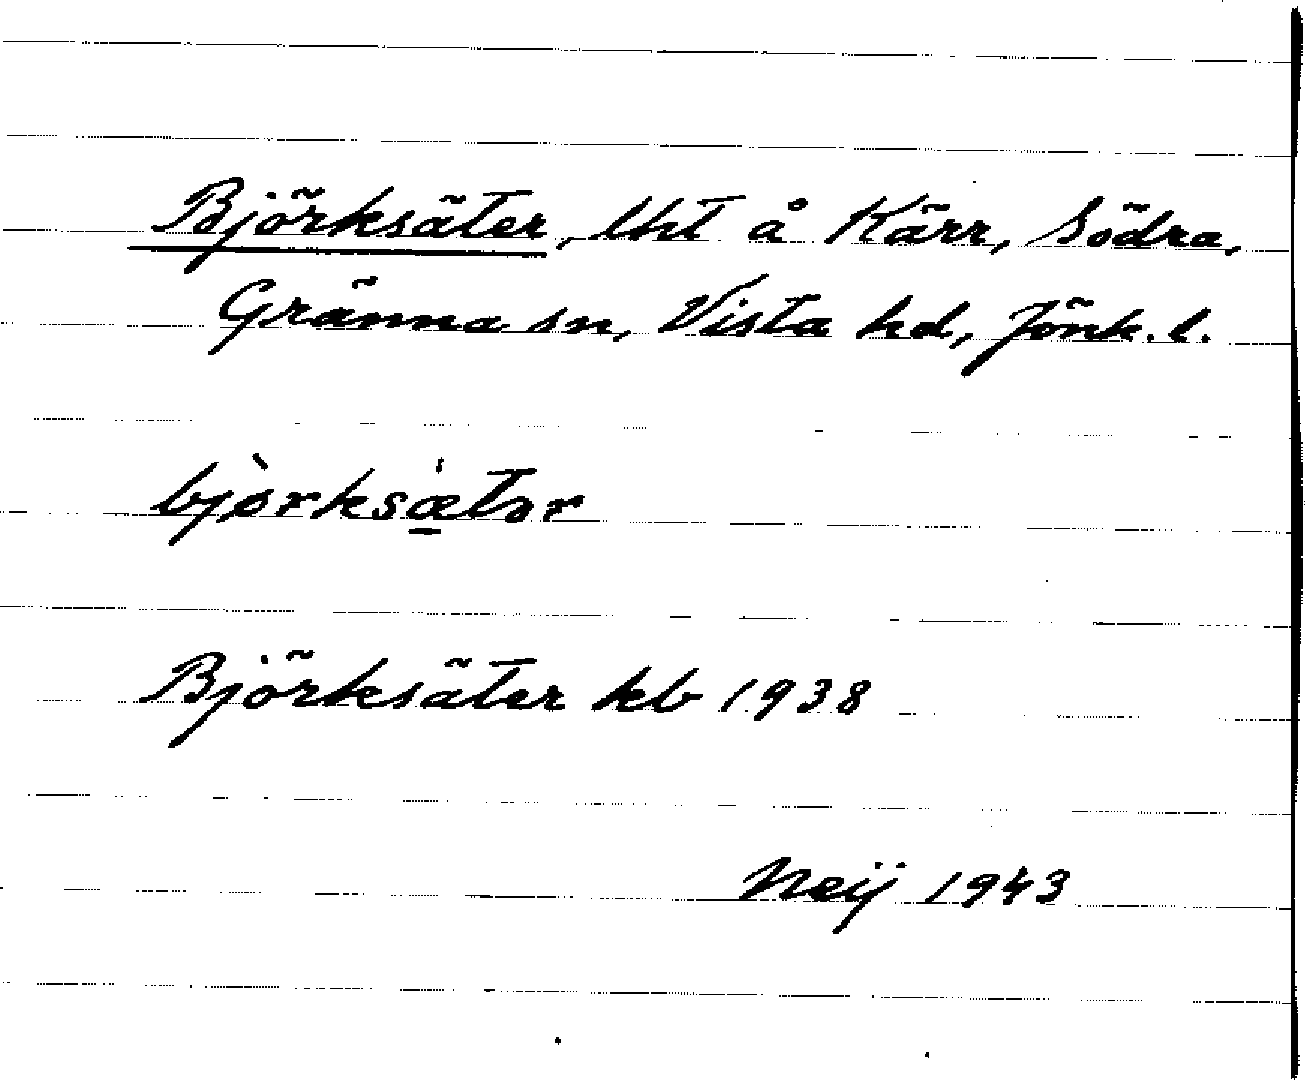 Björksäter, lht å Kärr, Södra,
Gränna sn, Vista hd, Jönk. l.
bjòrksæ̠̍tər
Björksäter kb 1938
Neij 1943